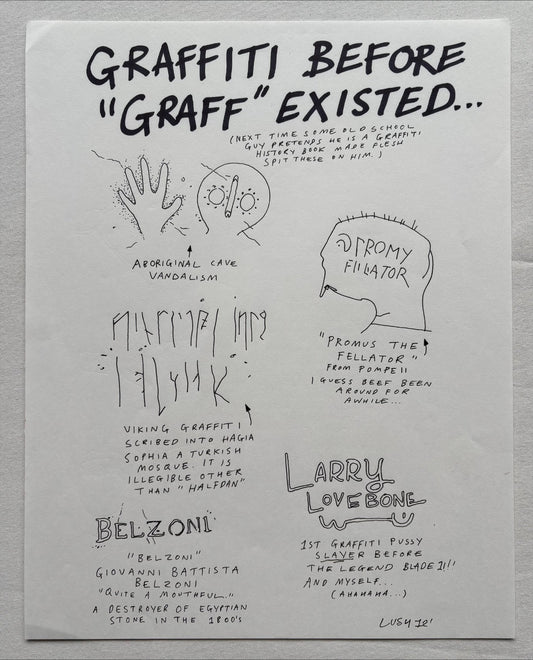 GRAFFITI BEFORE
"GRAFF" EXISTED...
(NEXT TIME SOME OLD SCHOOL
GUY PRETENDS HE IS A GRAFFITI
HISTORY BOOK MADE FLESH
SPIT THESE ON HIM.)
ABORIGINAL CAVE
VANDALISM
PROMY
FILLATOR
"PROMUS THE
FELLATOR"
FROM POMPEII
I GUESS BEEF BEEN
AROUND FOR
AWHILE...
VIKING GRAFFITI
SCRIBED INTO HAGIA
SOPHIA A TURKISH
MOSQUE. IT IS
ILLEGIBLE OTHER
THAN "HALFDAN"
LARRY
LOVEBONE
1ST GRAFFITI PUSSY
SLAYER BEFORE
THE LEGEND BLADE
AND MYSELF...
(AHAHAHA...)
BELZONI
"BELZONI"
GIOVANNI BATTISTA
BELZONI
"QUITE A MOUTHFUL."
A DESTROYER OF EGYPTIAN
STONE IN THE 1800'S